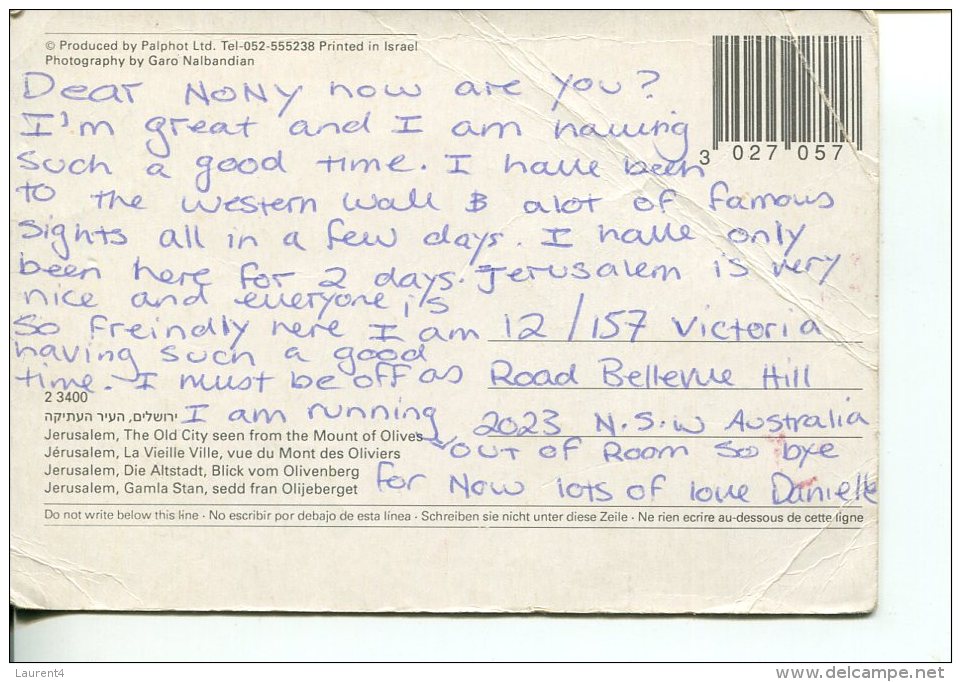 © Produced by Palphot Ltd. Tel-052-555238 Printed in Israel
Photography by Garo Nalbandian
3 027057
Dear Nony how are you?
I'm great and I am having
such a good time. I have been
to the western wall & alot of famous
sights all in a few days. I have only
been here for 2 days. Jerusalem is very
nice and everyone is
so freindly here I am
having such a good
time. I must be off as
I am running
out of room so bye
for now lots of love Danielle
12/157 Victoria
Road Bellevue Hill
2023 N.S.W Australia
2 3400
ירושלים, העיר העתיקה
Jerusalem, The Old City seen from the Mount of Olives
Jérusalem, La Vieille Ville, vue du Mont des Oliviers
Jerusalem, Die Altstadt, Blick vom Olivenberg
Jerusalem, Gamla Stan, sedd fran Olijeberget
Do not write below this line · No escribir por debajo de esta linea · Schreiben sie nicht unter diese Zeile · Ne rien ecrire au-dessous de cette ligne
Laurent4
www.delcampe.net